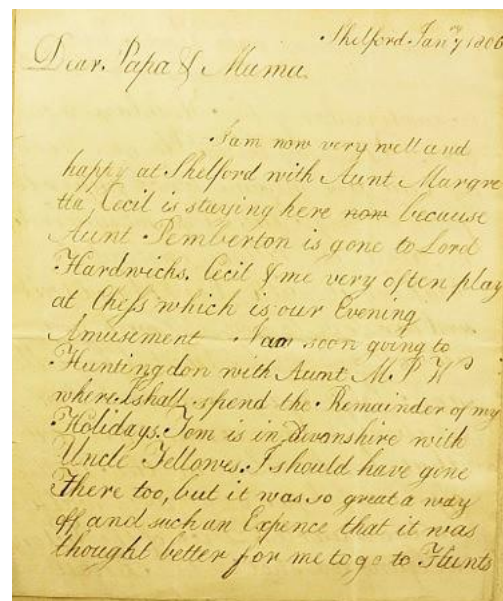 Shelford Janry 1806
Dear Papa & Mama
I am now very well and
happy at Shelford with Aunt Margre
tta Cecil is staying here now because
Aunt Pemberton is gone to Lord
Hardwichs. Cecil & me very often play
at Chess which is our Evening
Amusement I am soon going to
Huntingdon with Aunt M. P W
where I shall spend the Remainder of my
Holidays. Tom is in Devonshire with
Uncle Fellowes. I should have gone
There too, but it was so great a way
off and such an Expence that it was
thought better for me to go to Hunts